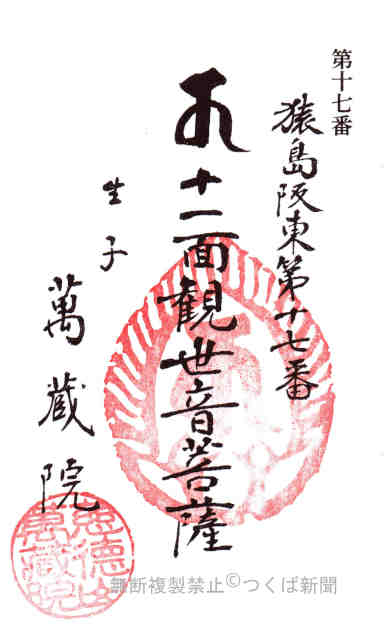 第十七番
猿島阪東第十七番
十一面観世音菩薩
生子
萬蔵院
無断複製禁止©つくば新聞